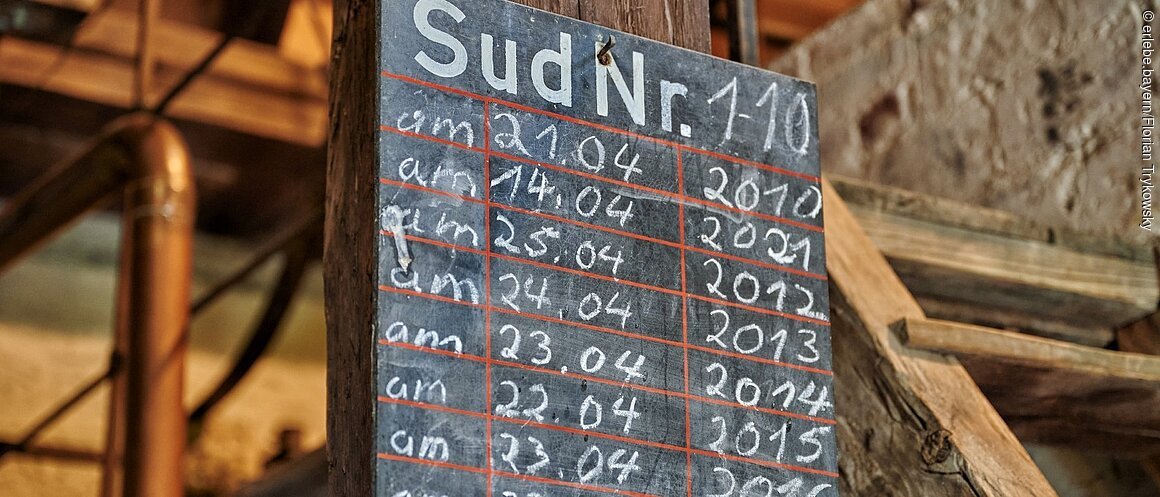 Sud Nr. 1-10
am 21.04 2010
am 14.04 2021
am 25.04 2012
am 24.04 2013
am 23.04 2014
am 22.04 2015
am 23.04 2016
am
© erlebe.bayern/Florian Trykowsky